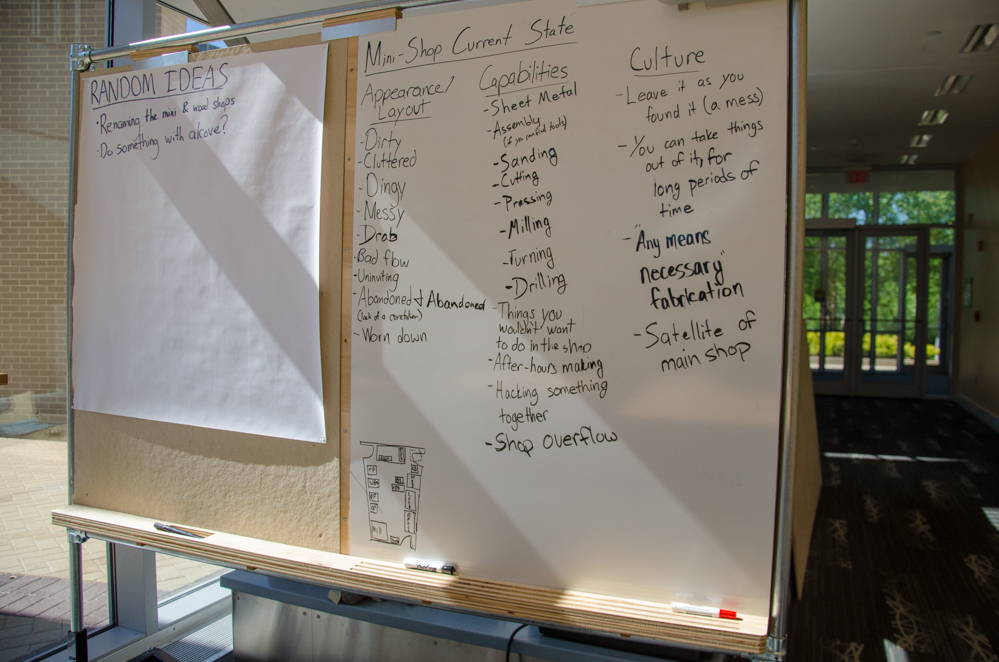 RANDOM IDEAS
• Renaming the mini & wood shops
• Do something with alcove?
Mini-Shop Current State
Appearance/
Layout
- Dirty
- Cluttered
- Dingy
- Messy
- Drab
- Bad flow
- Uninviting
- Abandoned + Abandoned
(lack of a caretaker)
- Worn down
Capabilities
- Sheet Metal
- Assembly
(if you can find tools)
- Sanding
- Cutting
- Pressing
- Milling
- Turning
- Drilling
- Things you
wouldn't want
to do in the shop
- After-hours making
- Hacking something
together
- Shop overflow
Culture
- Leave it as you
found it (a mess)
- You can take things
out of it, for
long periods of
time
- "Any means
necessary"
fabrication
- Satellite of
main shop